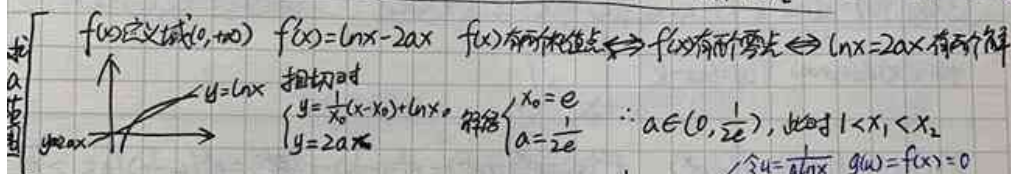 求a范围
f(x)定义域(0,+∞) f'(x)=lnx-2ax f(x)有两个极值点⇔f'(x)有两个零点⇔lnx=2ax有两个解
y=lnx 相切时
y=2ax { y=1/x₀(x-x₀)+lnx₀ y=2ax 解得 { x₀=e a=1/2e ∴a∈(0,1/2e),此时1<x₁<x₂
g(u)=f(x)=0